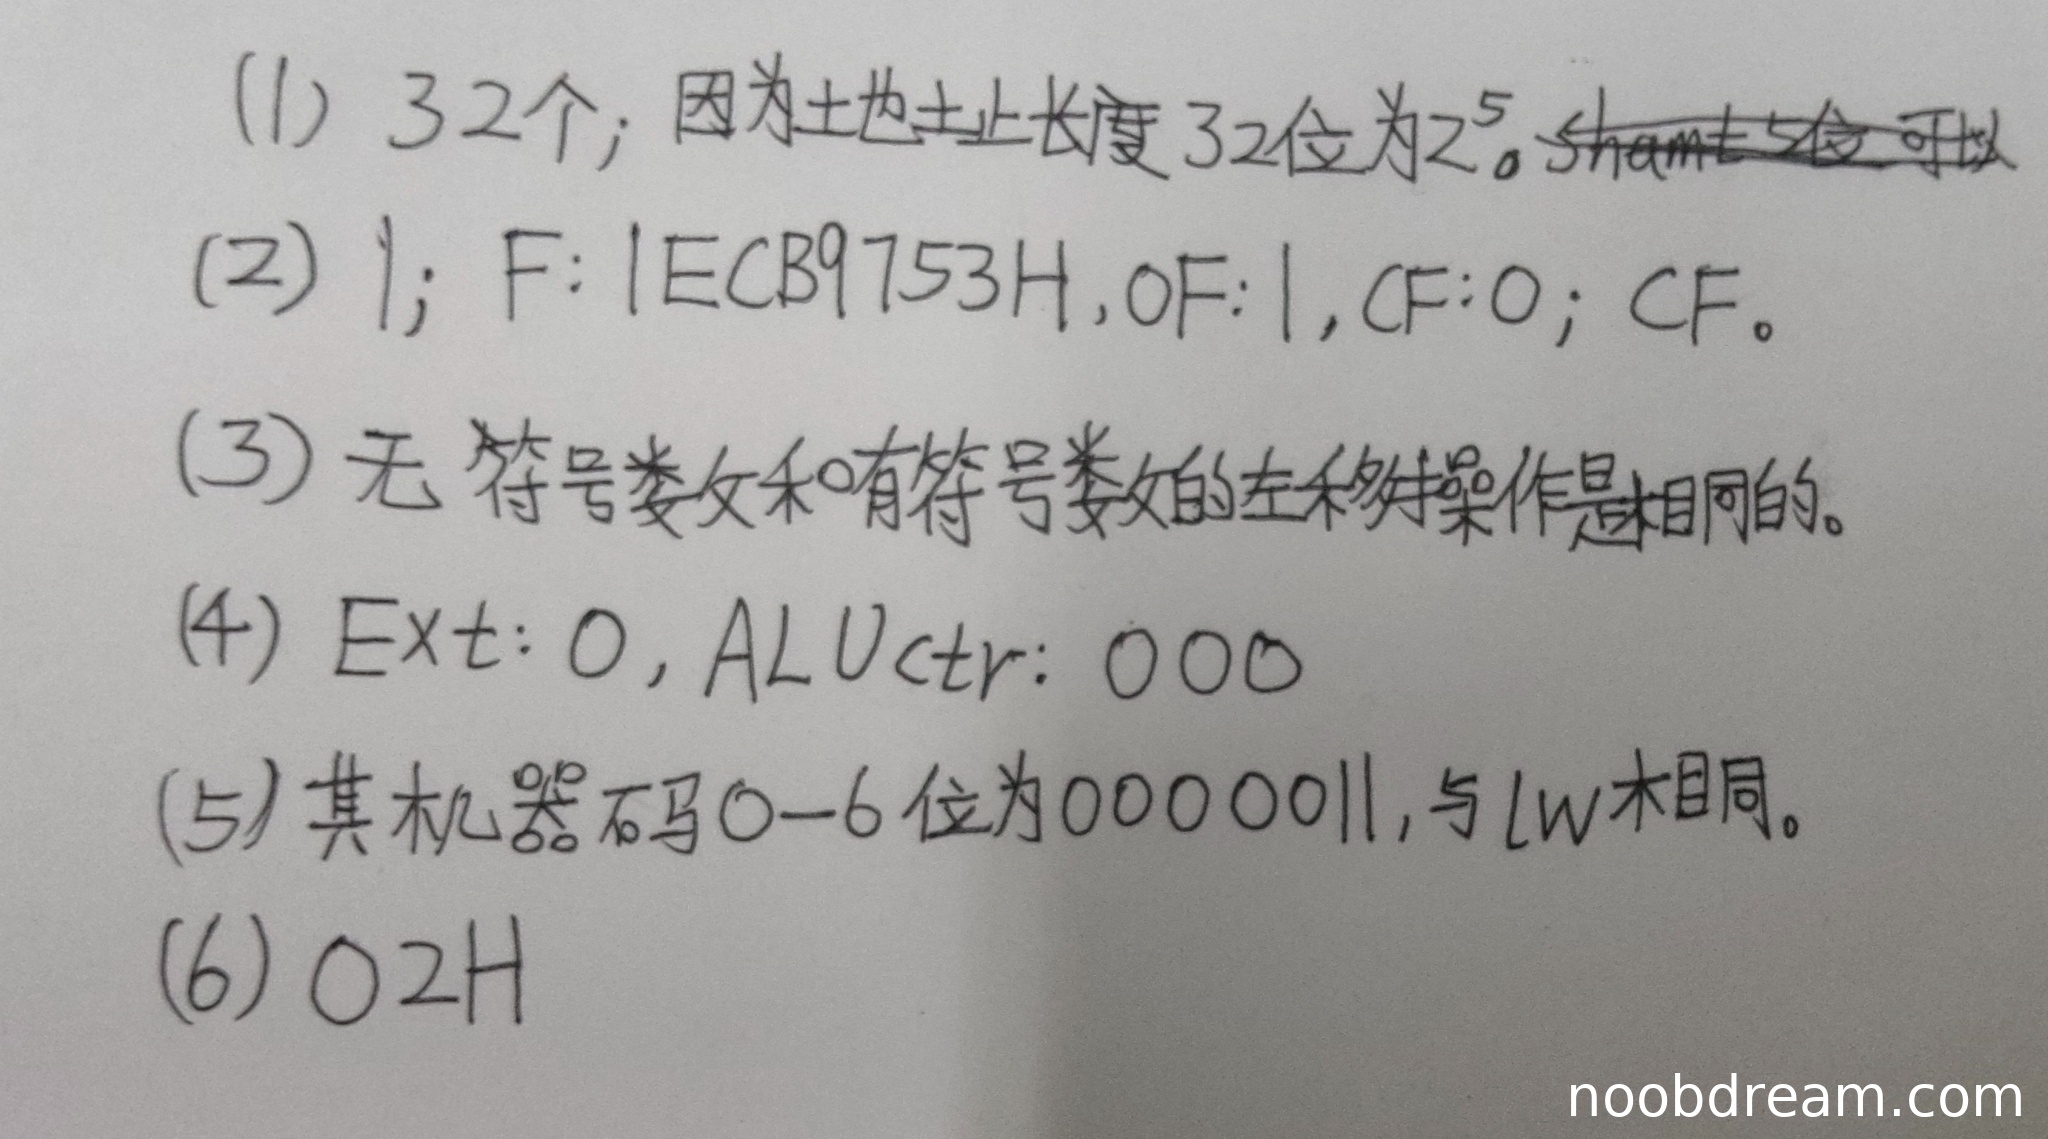 (1) 32个；因为地址长度32位为2⁵。shamt 5位 可以
(2) 1; F: 1ECB9753H, OF: 1, CF: 0; CF。
(3) 无符号数和有符号数的左移操作是相同的。
(4) Ext: 0, ALUctr: 000
(5) 其机器码0-6位为0000011, 与lw相同。
(6) 02H
noobdream.com